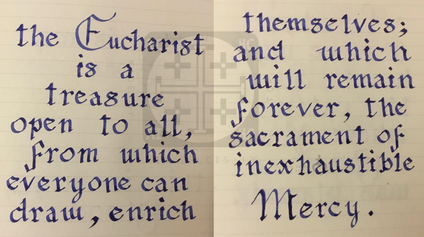 the Eucharist
is a
treasure
open to all,
from which
everyone can
draw, enrich
themselves;
and which
will remain
forever, the
sacrament of
inexhaustible
Mercy.